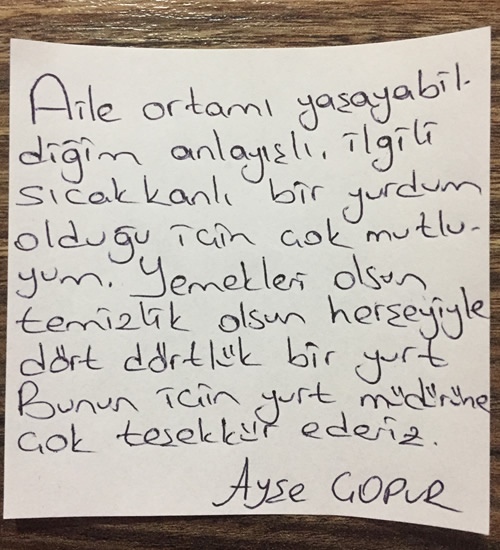 Aile ortamı yaşayabil-
diğim anlayışlı, ilgili
sıcakkanlı bir yurdum
olduğu için çok mutlu-
yum. Yemekleri olsun
temizlik olsun herşeyiyle
dört dörtlük bir yurt
Bunun için yurt müdürüne
çok teşekkür ederiz.
Ayşe ÇOPUR